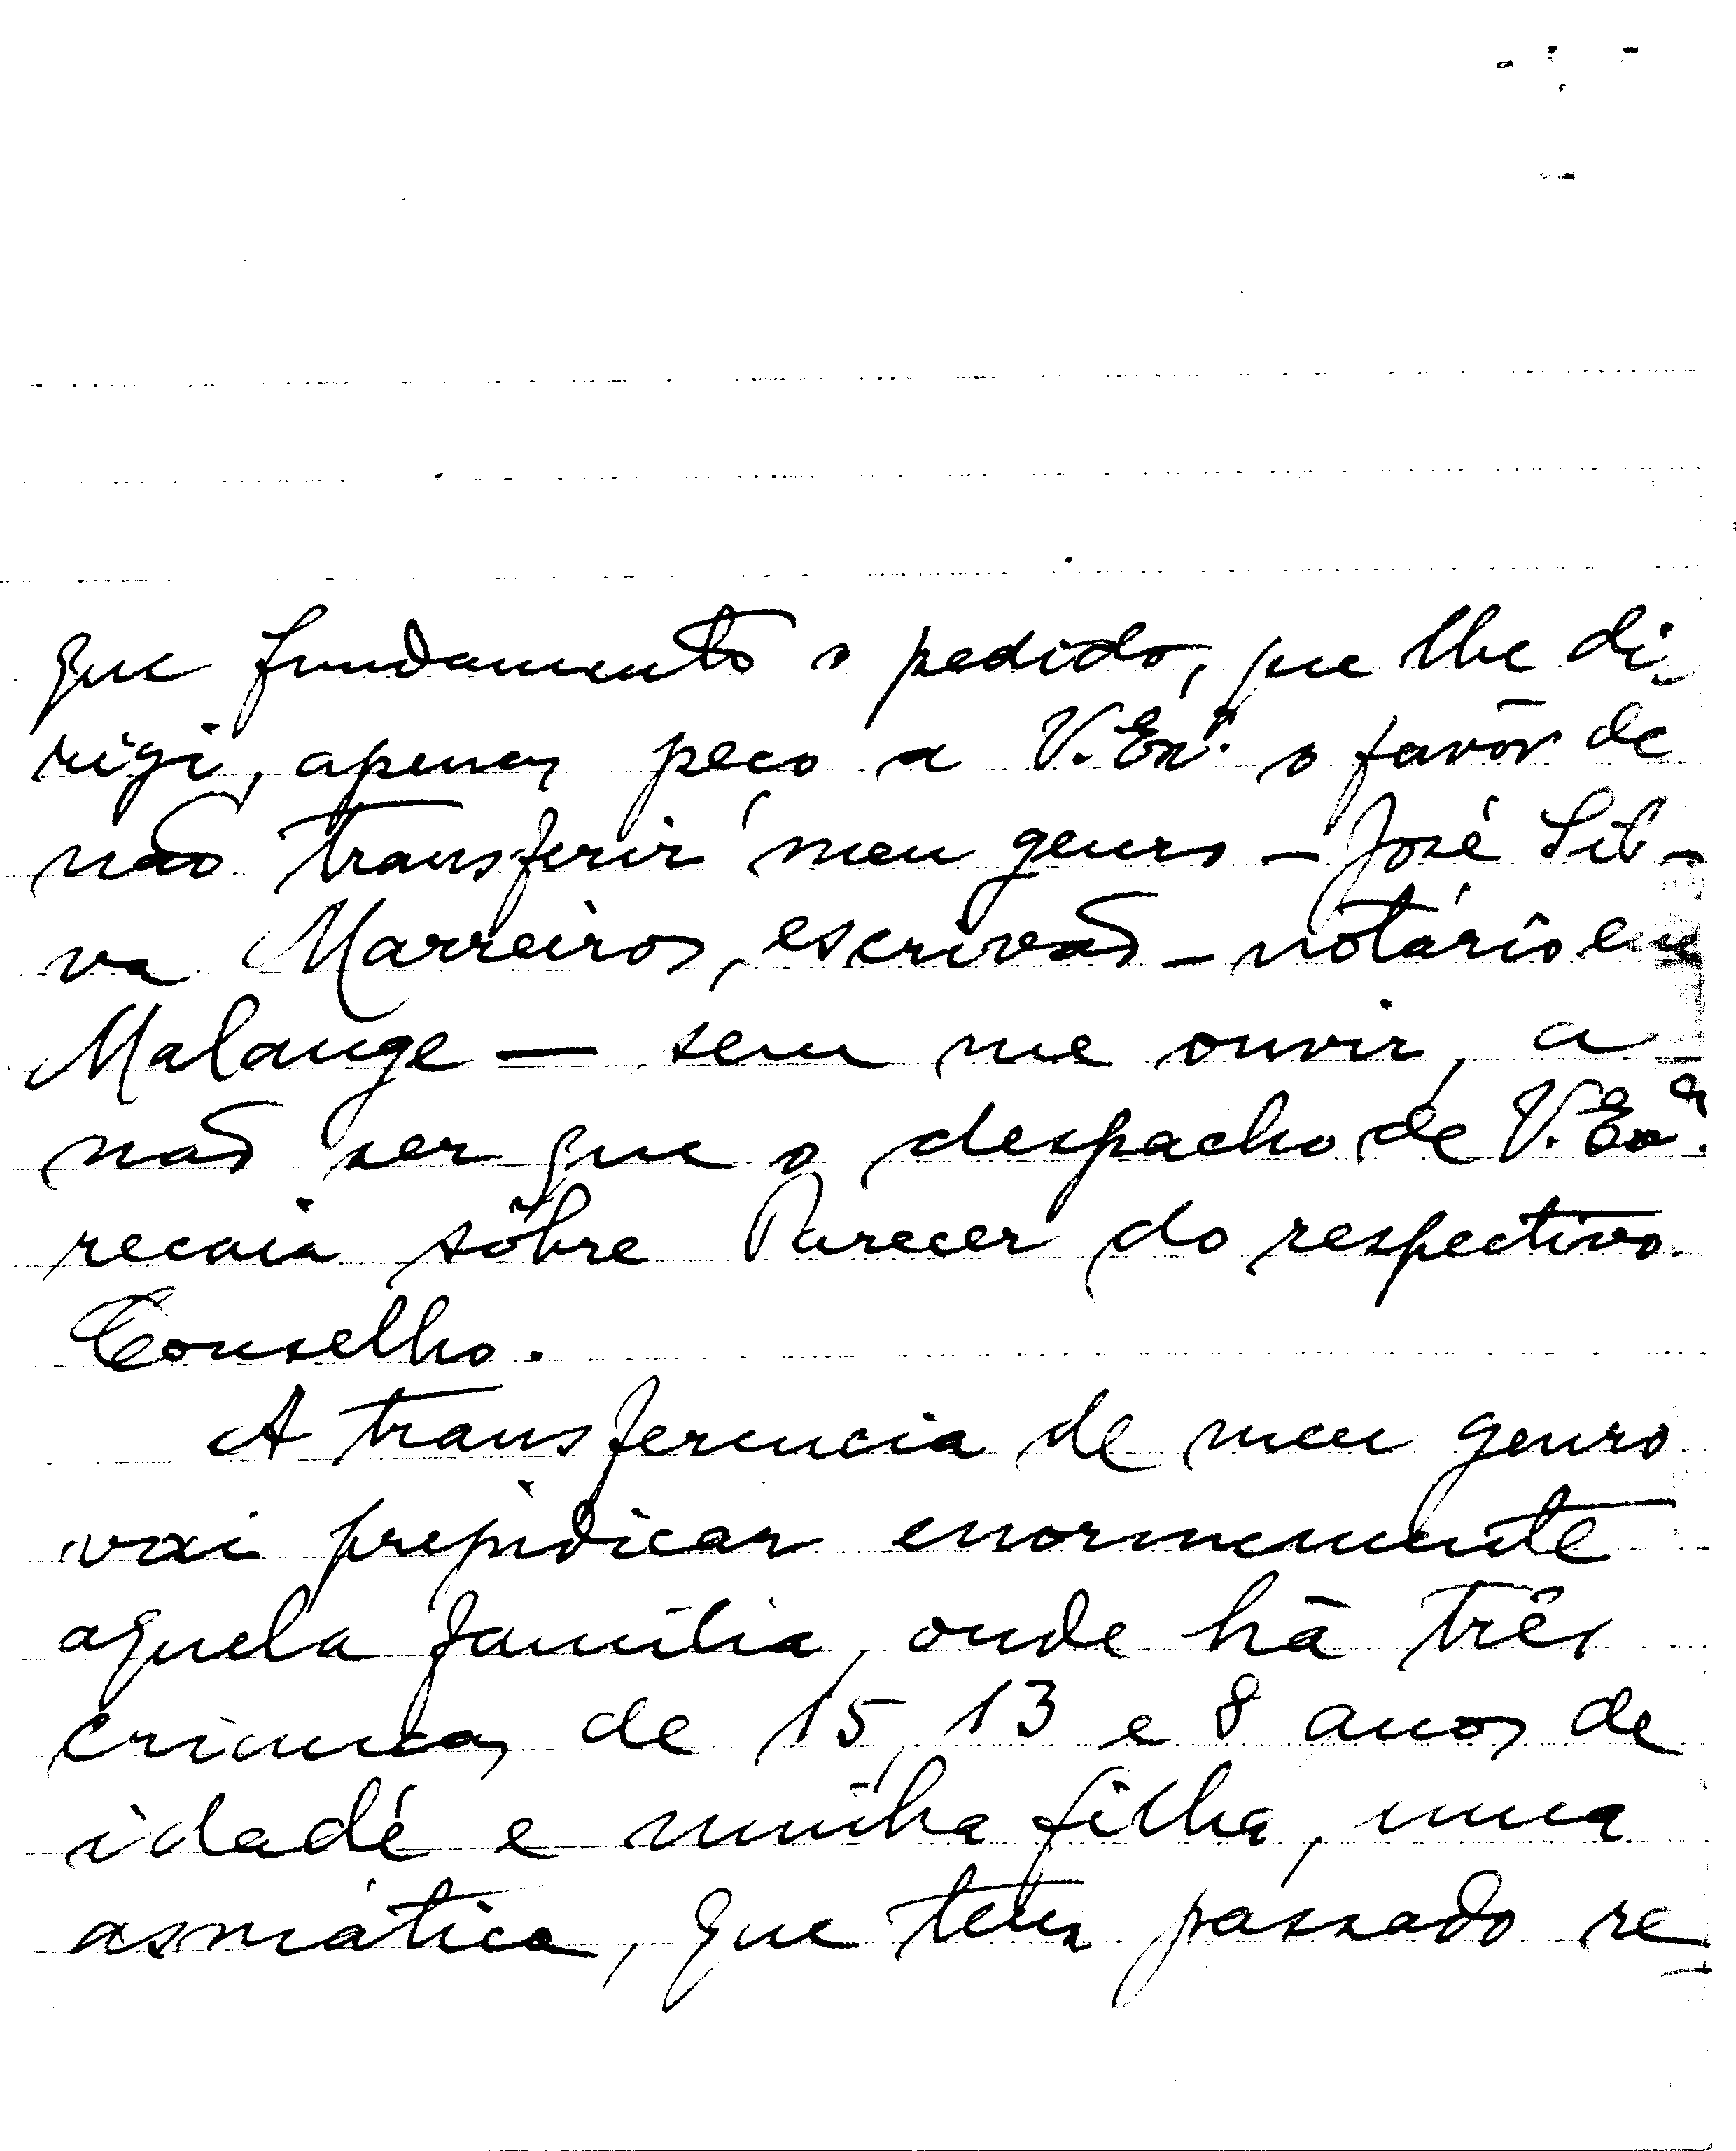 que fundamento o pedido, que lhe di-
rigi, apenas peço a V. Exª. o favôr de
não transferir meu genro – José Sil-
va Marreiros, escrivão-notário em
Malange — sem me ouvir, a
não ser que o despacho de V. Exª.
recaia sôbre Parecer do respectivo
Conselho.
A transferencia de meu genro
vai prejudicar enormemente
aquela familia, onde há três
crianças de 15, 13 e 8 anos de
idade e minha filha, uma
asmática, que tem passado re-